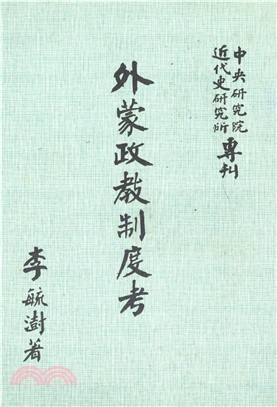 中央研究院
近代史研究所
專刊
外蒙政教制度考
李毓澍著
三民